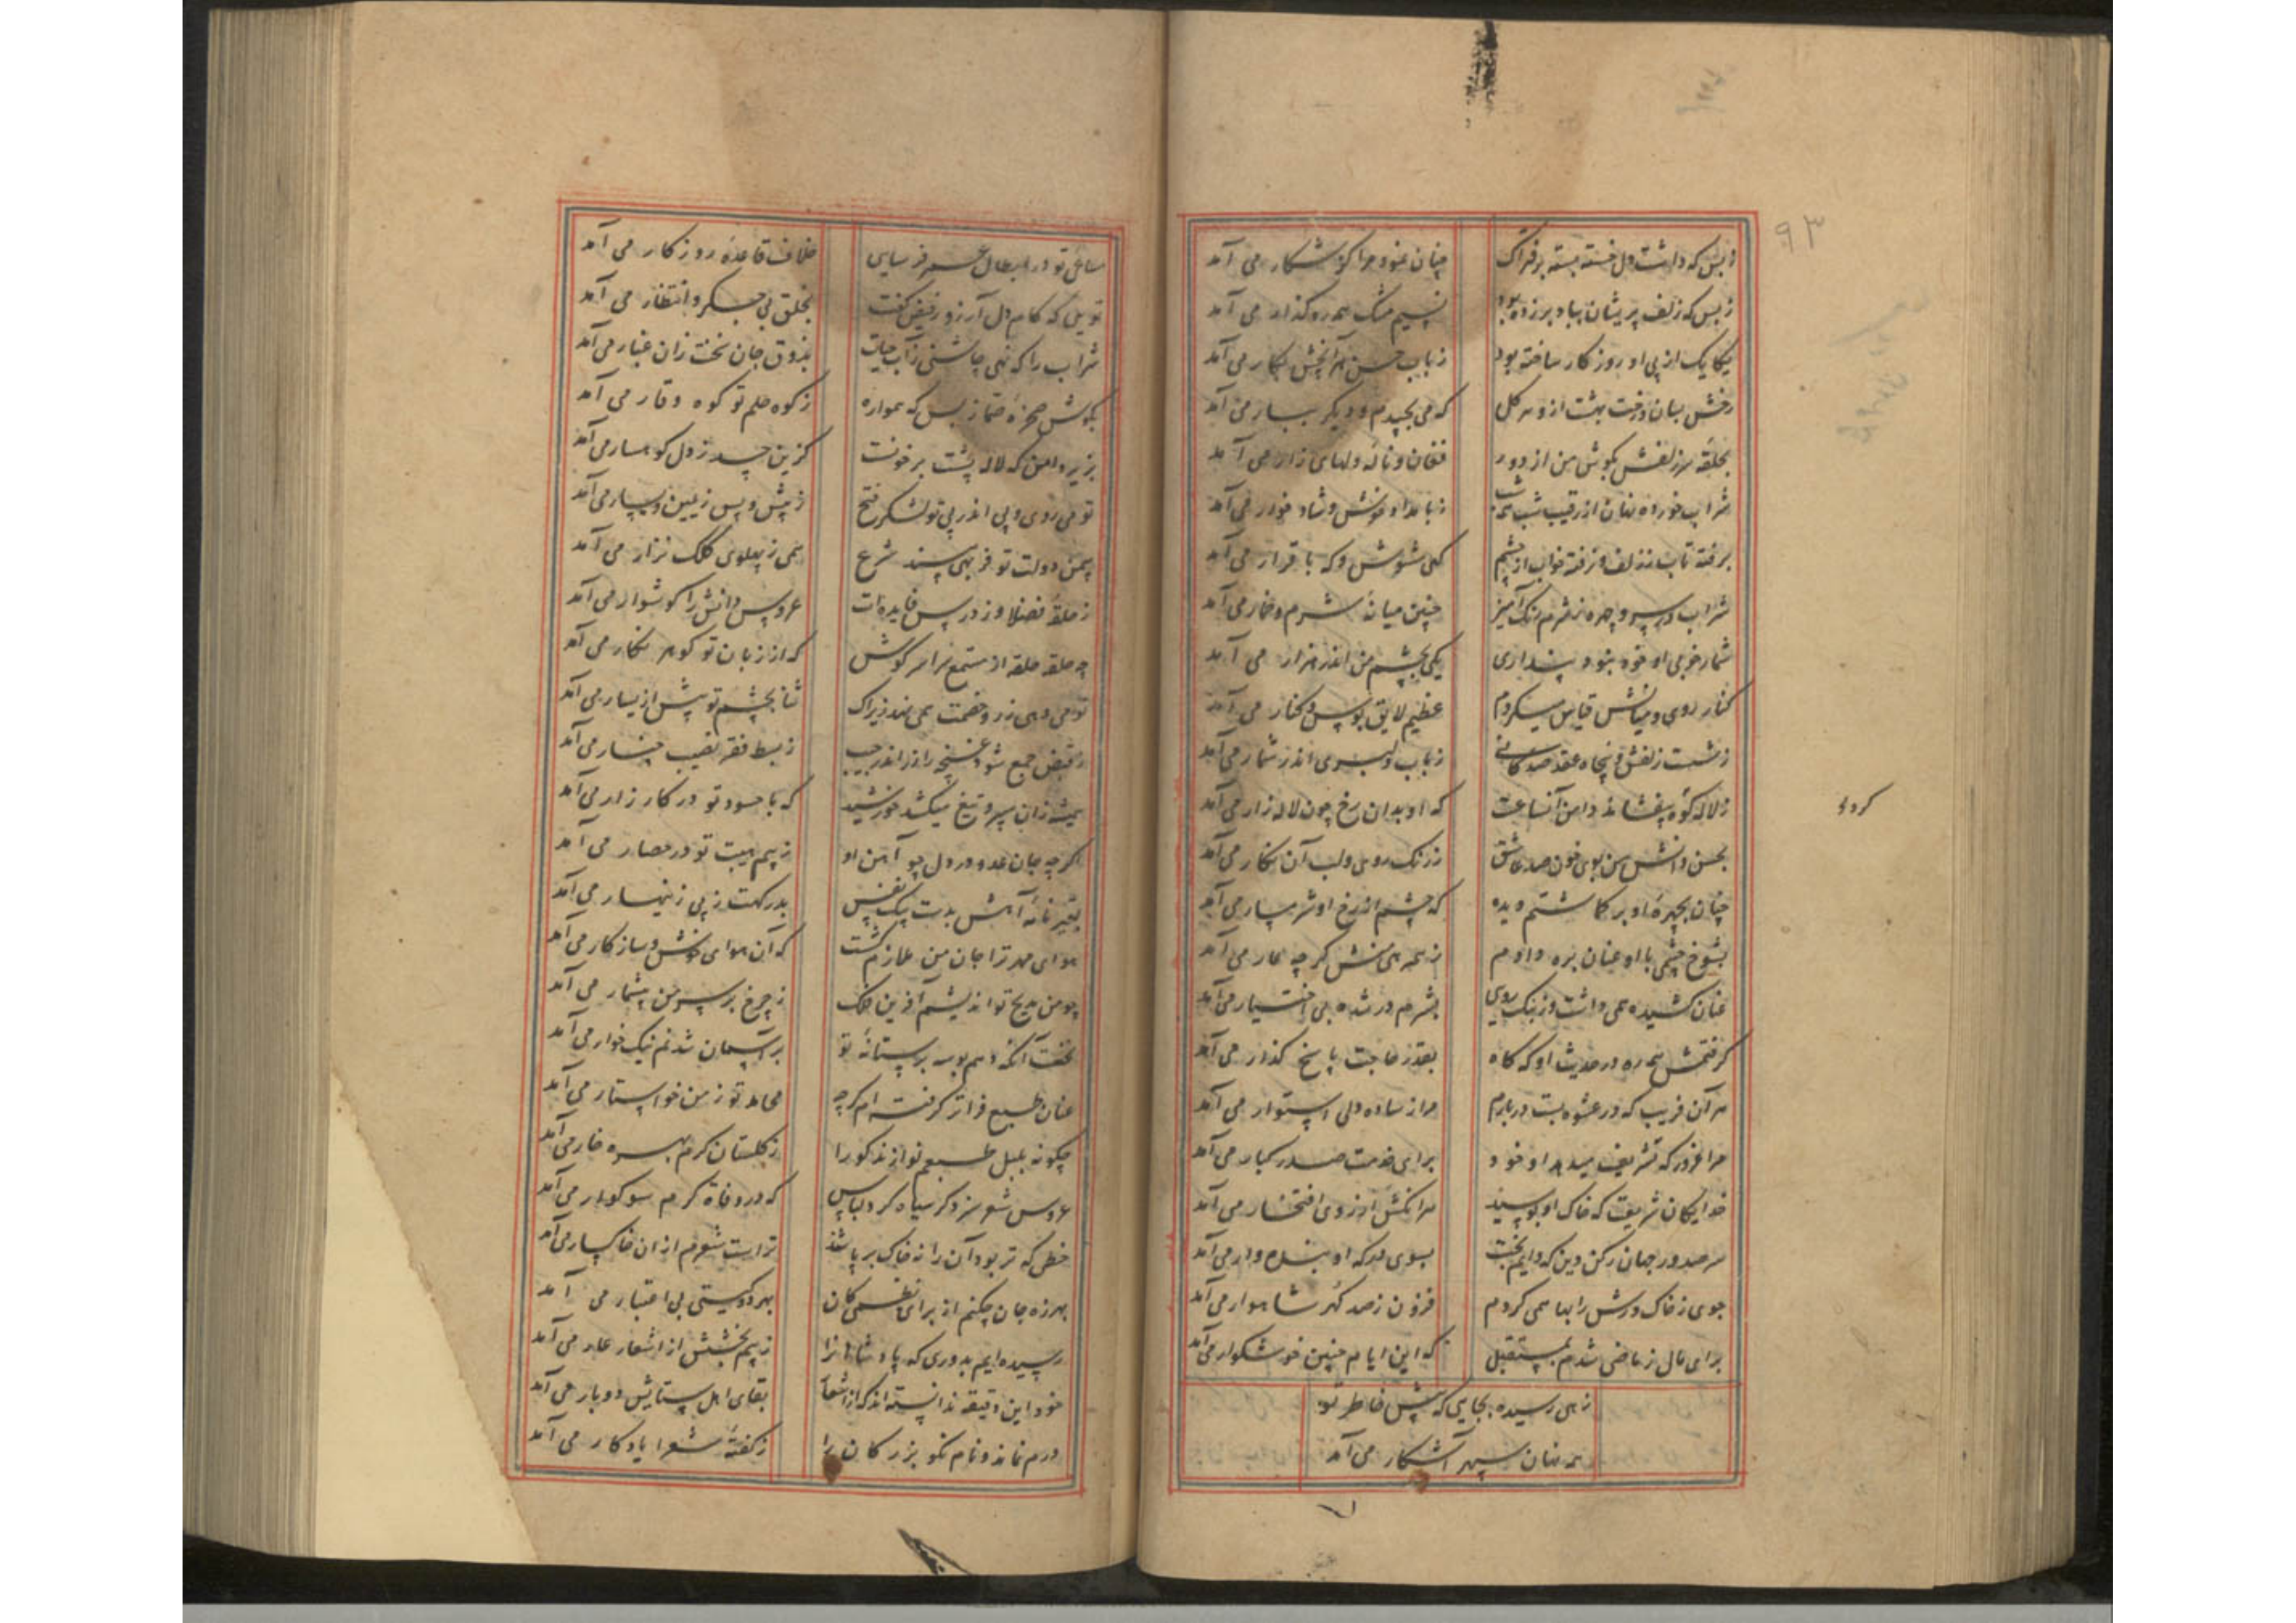 ۹۳
ز بس که داشت دل خسته بسته بر فتراک
چنان نمود مرا کز شکار می آمد
ز بس که زلف پریشان بباد بر زده بود
نسیم مشک همه رهگذار می آمد
یکایک از پی او روزکار ساخته بود
ز باب حسن هر آنچش بکار می آمد
رخش بسان درخت بهشت ازو هر کل
که می بچیدم و دیکر ببار می آمد
بحلقه سر زلفش بکوش من از دور
فغان و ناله دلهای زار می آمد
شراب خورده نهان از رقیب شب همه شب
ز بامداد خوش و شاد خوار می آمد
برفته تاب ز زلف و نرفته خواب از چشم
کهی مشوش و که با قرار می آمد
شراب در سر و چهره ز شرم رنک آمیز
چنین میانه شرم و خمار می آمد
شمار خوبی او خود نبود پنداری
یکی بچشم من اندر هزار می آمد
کنار روی و میانش قیاس میکردم
عظیم لایق بوس و کنار می آمد
ز شست زلفش پنجاه عقد صدکانی
ز باب دلبری اندر شمار می آمد
ز لاله کوه بیفشاند دامن آنساعت
که او بدان رخ چون لاله زار می آمد
کردد
بحسن دانش من بوی خون صد عاشق
ز رنک روی و لب آن نکار می آمد
چنان بچهره او بر کماشتم دیده
که چشم از رخ او شرمسار می آمد
بشوخ چشمی با او عنان بره دادم
ز همرهی منش کرچه عار می آمد
عنان کشیده همی داشت وز نیک رویی
بشرم در شده بی اختیار می آمد
کرفتمش همه ره در حدیث او که کاه
بقدر حاجت پاسخ کذار می آمد
هر آن فریب که در عشوه بست در بارم
مرا ز ساده دلی استوار می آمد
مرا غرور که تشریف میدهد او خود
برای خدمت صدر کبار می آمد
خدایکان شریعت که خاک او بوسید
هر آنکش آرزوی افتخار می آمد
سر صدور جهان رکن دین که دایم بخت
بسوی درکه او بنده وار می آمد
جوی ز خاک درش را بها همی کردم
فزون ز صد کهر شاهوار می آمد
برای مال ز ماضی شدم بمستقبل
که این ایام چنین خوشکوار می آمد
زهی رسیده بجایی که پیش خاطر تو
همه نهان سپهر آشکار می آمد
مساعی تو در ابطال عمر فرسایی
خلاف قاعده روزکار می آمد
تویی که کام دل آرزو ز فیض کفت
بخلق بی جکر و انتظار می آمد
شراب را که نهی چاشنی ز آب حیات
بذوق جان تخت زان غبار می آمد
بکوش صخره صما ز بس که همواره
ز کوه حلم تو کوه وقار می آمد
بزیر دامن که لاله پشت بر خونست
کزین حسد ز دل کوهسار می آمد
تو می روی و پی اندر پی تو لشکر فتح
ز پیش و پس ز یمین و یسار می آمد
بیمن دولت تو فربهی سند شرع
همی ز پهلوی کلک نزار می آمد
ز حلقه فضلا وز درس فایده ات
عروس دانش را کوشوار می آمد
چه حلقه حلقه از مستمع سراسر کوش
که از زبان تو کوهر نکار می آمد
تو می دهی زر و خصمت همی نهد زیراک
ثنا بچشم تو بیش از یسار می آمد
ز قبض جمع شود غنچه را زر اندر جیب
ز بسط فقر نصیب چنار می آمد
همیشه زان سپر و تیغ میکشد خورشید
که با حسود تو در کارزار می آمد
اکرچه جان عدو در دل چو آهن او
ز بیم هیبت تو در حصار می آمد
بتیر ناله آهش بدست پیک نفس
بدرکهت ز پی زینهار می آمد
هوای مهر ترا جان من ملازم کشت
که آن هوای خوش و سازکار می آمد
چو من مدیح تو اندیشم آفرین فلک
ز چرخ بر سر من بیشمار می آمد
نخست آنکه دهم بوسه بر ستانه تو
بر آسمان شدنم نیک خوار می آمد
عنان طبع فراتر کرفته ام کرچه
محامد تو ز من خواستار می آمد
چکونه بلبل طبعم نوا زند کورا
ز کلستان کرم بهره خار می آمد
عروس شعر سزد کر سیاه کرد لباس
که در وفات کرم سوکوار می آمد
خطی که تر بود آن را نه خاک بر پاشند
تر است شعرم از ان خاکسار می آمد
بهرزه جان چکنم از برای نظمی کان
بهر دو کیتی بی اعتبار می آمد
رسیده ایم بدوری که پادشاهانرا
ز بیم بخشش از اشعار عار می آمد
خود این دقیقه ندانسته اند که از اشعار
بقای اهل ستایش دوبار می آمد
درم نماند و نام نکو بزرکان را
ز کفته شعرا یادکار می آمد